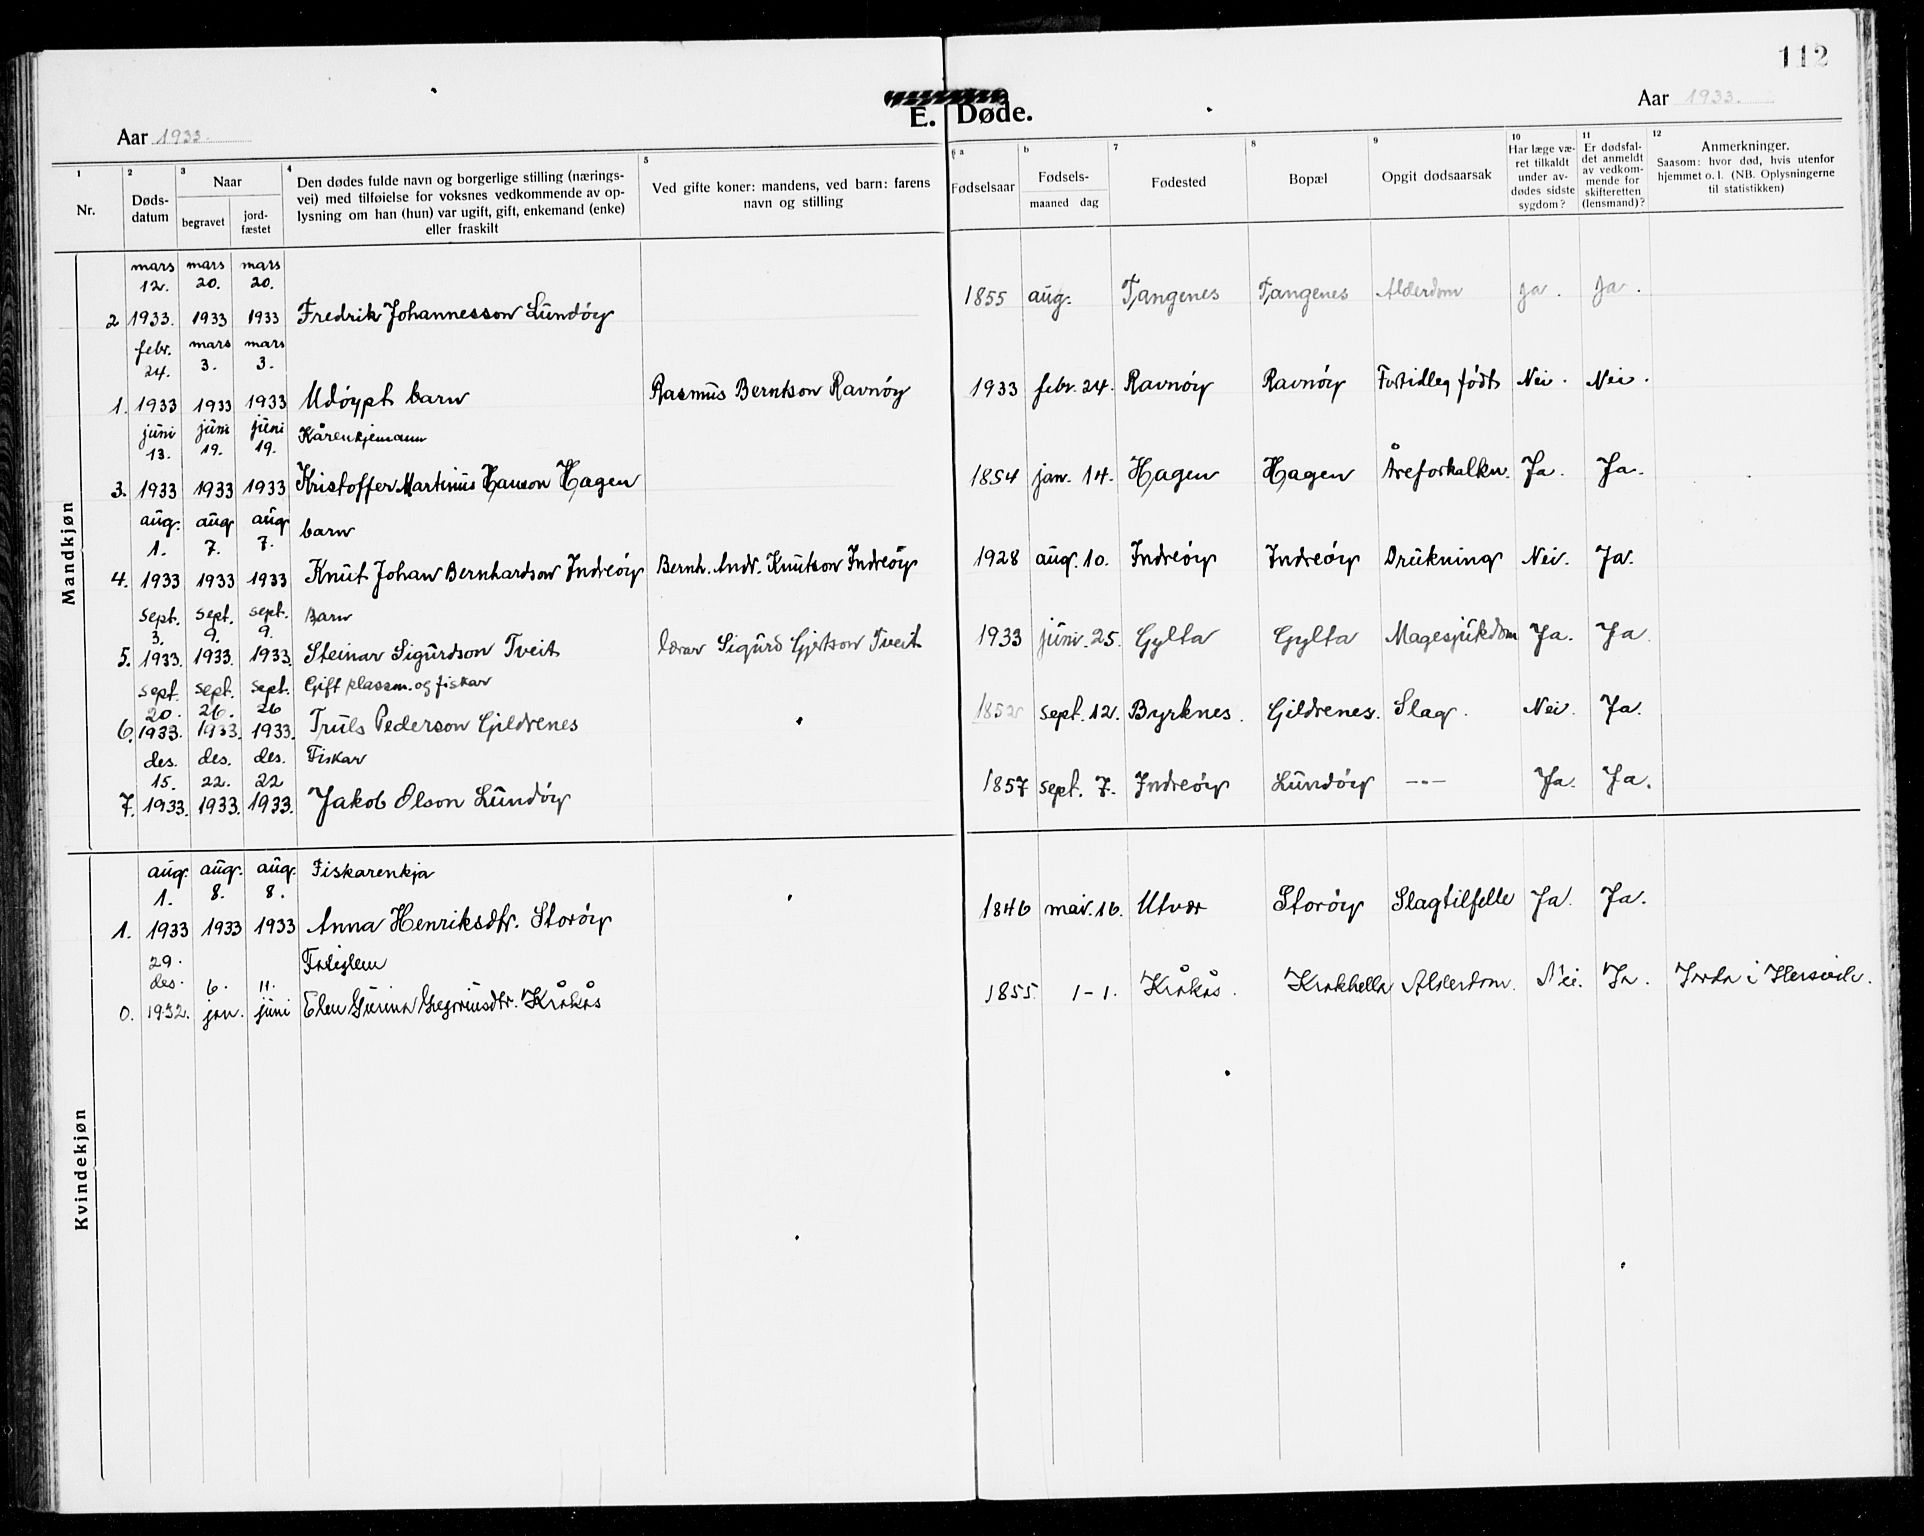 112
E. Døde.
Aar 1933.
Aar 1933.
1
Nr.
2
Døds-
datum
3
Naar
begravet
jord-
fæstet
4
Den dødes fulde navn og borgerlige stilling (nærings-
vei) med tilføielse for voksnes vedkommende av op-
lysning om han (hun) var ugift, gift, enkemand (enke)
eller fraskilt
5
Ved gifte koner: mandens, ved barn: farens
navn og stilling
6 a
Fødselsaar
b
Fødsels-
maaned dag
7
Fødested
8
Bopæl
9
Opgit dødsaarsak
10
Har læge væ-
ret tilkaldt
under av-
dødes sidste
sygdom?
11
Er dødsfal-
det anmeldt
av vedkom-
mende for
skifteretten
(lensmand)?
12
Anmerkninger.
Saasom: hvor død, hvis utenfor
hjemmet o. l. (NB. Oplysningerne
til statistikken)
Mandkjøn
mars mars mars
12. 20. 20.
2 1933. 1933 1933 Fredrik Johannesson Lundöy 1855 aug. Tangenes Tangenes Alderdom Ja. Ja.
febr. mars mars
24. 3. 3.
1. 1933 1933 1933 Udöypt barn Rasmus Berntson Ravnöy 1933 febr. 24. Ravnöy Ravnöy Fortidleg födt Nei. Nei.
juni juni juni Kårenkjemann
13. 19. 19.
3. 1933 1933 1933 Kristoffer Martinus Hanson Hagen 1854 jan. 14. Hagen Hagen Åreforkalkn. Ja. Ja.
aug. aug aug barn
1. 7. 7.
4. 1933 1933 1933 Knut Johan Bernhardson Indreöy Bernh. Andr. Knutson Indreöy 1928 aug. 10. Indreöy Indreöy Drukning Nei. Ja.
sept. sept. sept. Barn
3. 9. 9.
5. 1933. 1933. 1933. Steinar Sigurdson Tveit lærar Sigurd Gjertson Tveit 1933 juni. 25. Gylta Gylta Magesjukdom Ja. Ja.
sept. sept. sept. Gift plassm. og fiskar
20. 26. 26
6. 1933. 1933. 1933. Truls Pederson Gildrenes 1852 sept. 12. Byrknes. Gildrenes. Slag. Nei. Ja.
des. des. des. Fiskar
15. 22. 22
7. 1933. 1933. 1933. Jakob Olson Lundöy 1857 sept. 7. Indreöy Lundöy -"- Ja. Ja.
Kvindekjøn
aug. aug. aug. Fiskarenkja
1. 8. 8.
1. 1933 1933 1933 Anna Henriksdtr. Storöy 1846 mai. 16. Utvær Storöy Slagtilfelle Ja. Ja.
29.
des. 6. 11.
0. 1932. jan. juni Elen Gurina Gregoriusdtr. Kråkås 1855. 1-1. Kråkås. Krakhella Alderdom. Nei. Ja. Jorda i Hersvik.